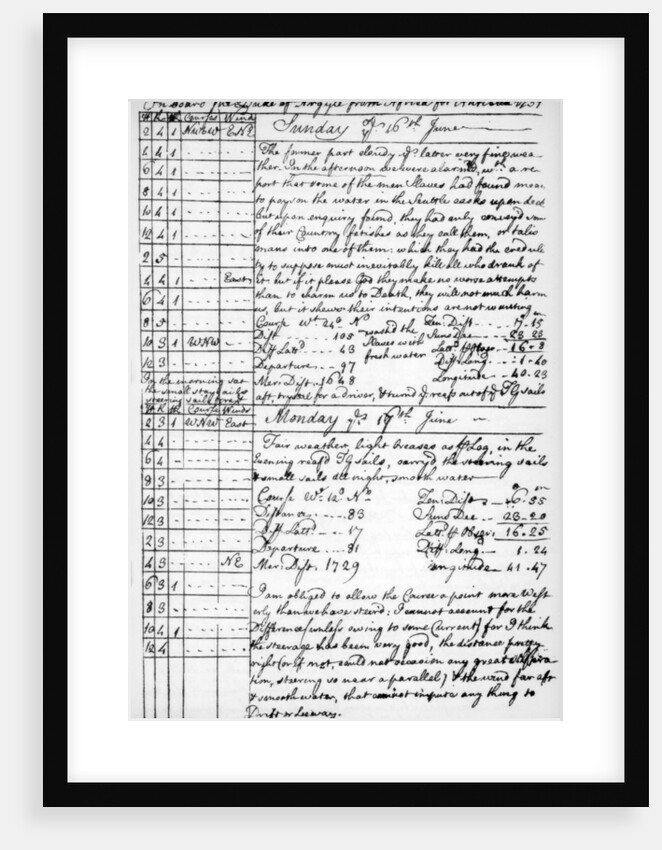 On board the Duke of Argyle from Africa for Antigua 1751
H K ½K Courses Winds
2 4 1 NWbW ENE
Sunday ye 16th June
4 4 1
The former part cloudy ye latter very fine wea
ther. In the afternoon we were alarm'd wth a re
6 4 1
port that some of the men Slaves had found mean
8 4 1
to poyson the water in the Scuttle casks upon deck
10 4 1
but upon enquiry found, they had only convey'd some
12 4 1
of their Country fetishes as they call them, or talis
mans into one of them which they had the creduli
2 5
ty to suppose must inevitably kill all who drank of
4 4 1 East
it but if it please God they make no worse attempts
than to charm us to Death, they will not much harm
6 4 1
us, but it shews their intentions are not wanting
8 5
Course Wt 24d No Zen: Dist
10 3 1 WNW
Dist 105 washed the Suns Dec 23 23
Slaves with
Diff Latt 43 fresh water Latt 16 - 8
12 3
Departure 97 Diff Long 1 - 40
In the morning sat
Mer: Dist 1648 Longitude 40 - 23
the small stay sails
steering sails
aft, try sail for a driver, & turn'd ye reefs out of ye TG sails
H K ½K Course Winds
2 3 1 WNW East
Monday ye th June
4 4
Fair weather, light breases as Log, in the
6 4
Evening reef'd TG sails, carry'd the steering sails
8 3
& small sails all night, smooth water
10 3
Course Wt 12d No Zen: Dist 6.55
12 3
Distance 83 Suns Dec 23.20
2 3
Diff Latt 17 Latt by Obser: 16.25
Departure 81 Diff: Long 1.24
4 3 NE
Mer: Dist. 1729 Longitude 41.47
6 3 1
I am obliged to allow the Course a point more West
8 3
erly than we have steer'd: I cannot account for the
10 4 1
Difference (unless owing to some Current) for I think
12 4
the steerage has been very good, the distance pretty
right (or if not, could not occasion any great
tion, steering so near a parallel) & the wind far aft
& smooth water, that cannot impute any thing to
Drift or Leeway.